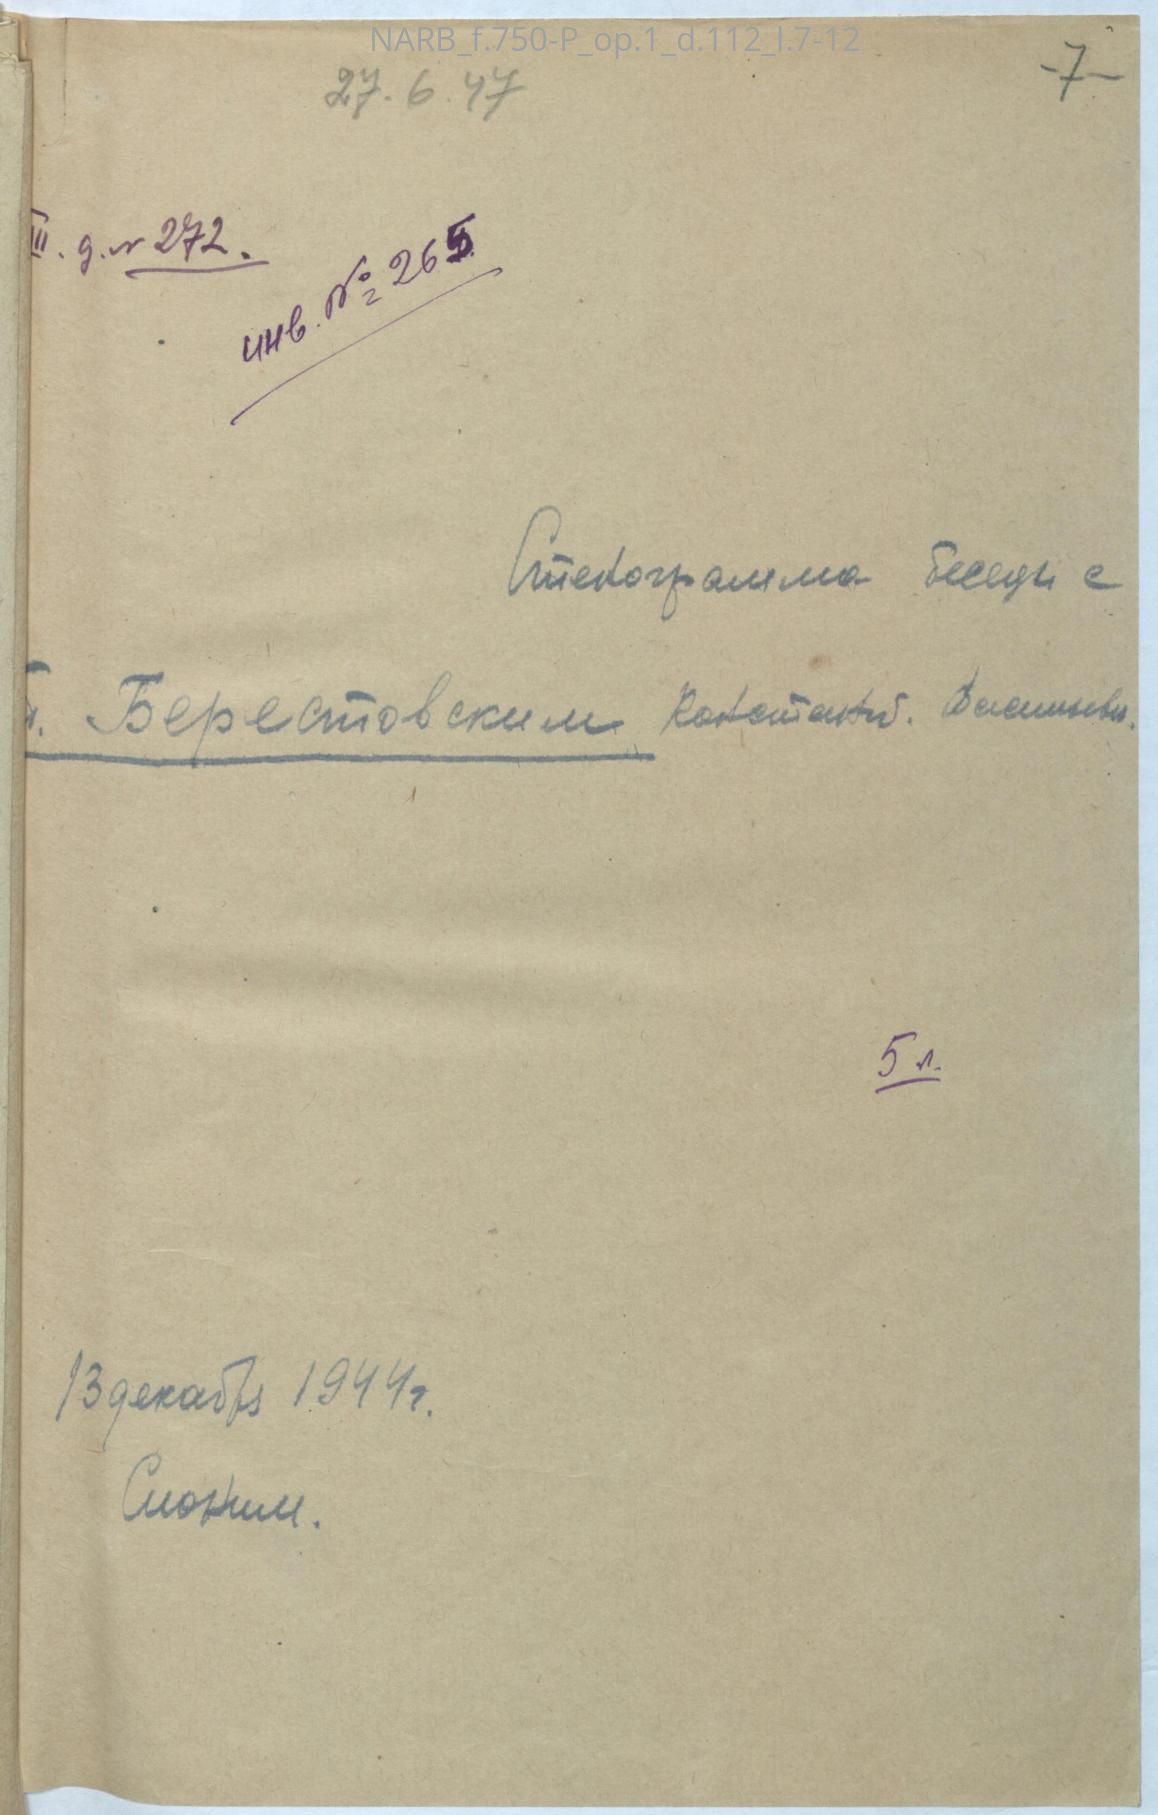 NARB_f.750-P_op.1_d.112_l.7-12
-7-
27.6.47
III. д. № 272.
инв. № 265
Стенограмма беседы с
т. Берестовским Константин. Васильеви.
5 л.
13 декабря 1944г.
Слоним.